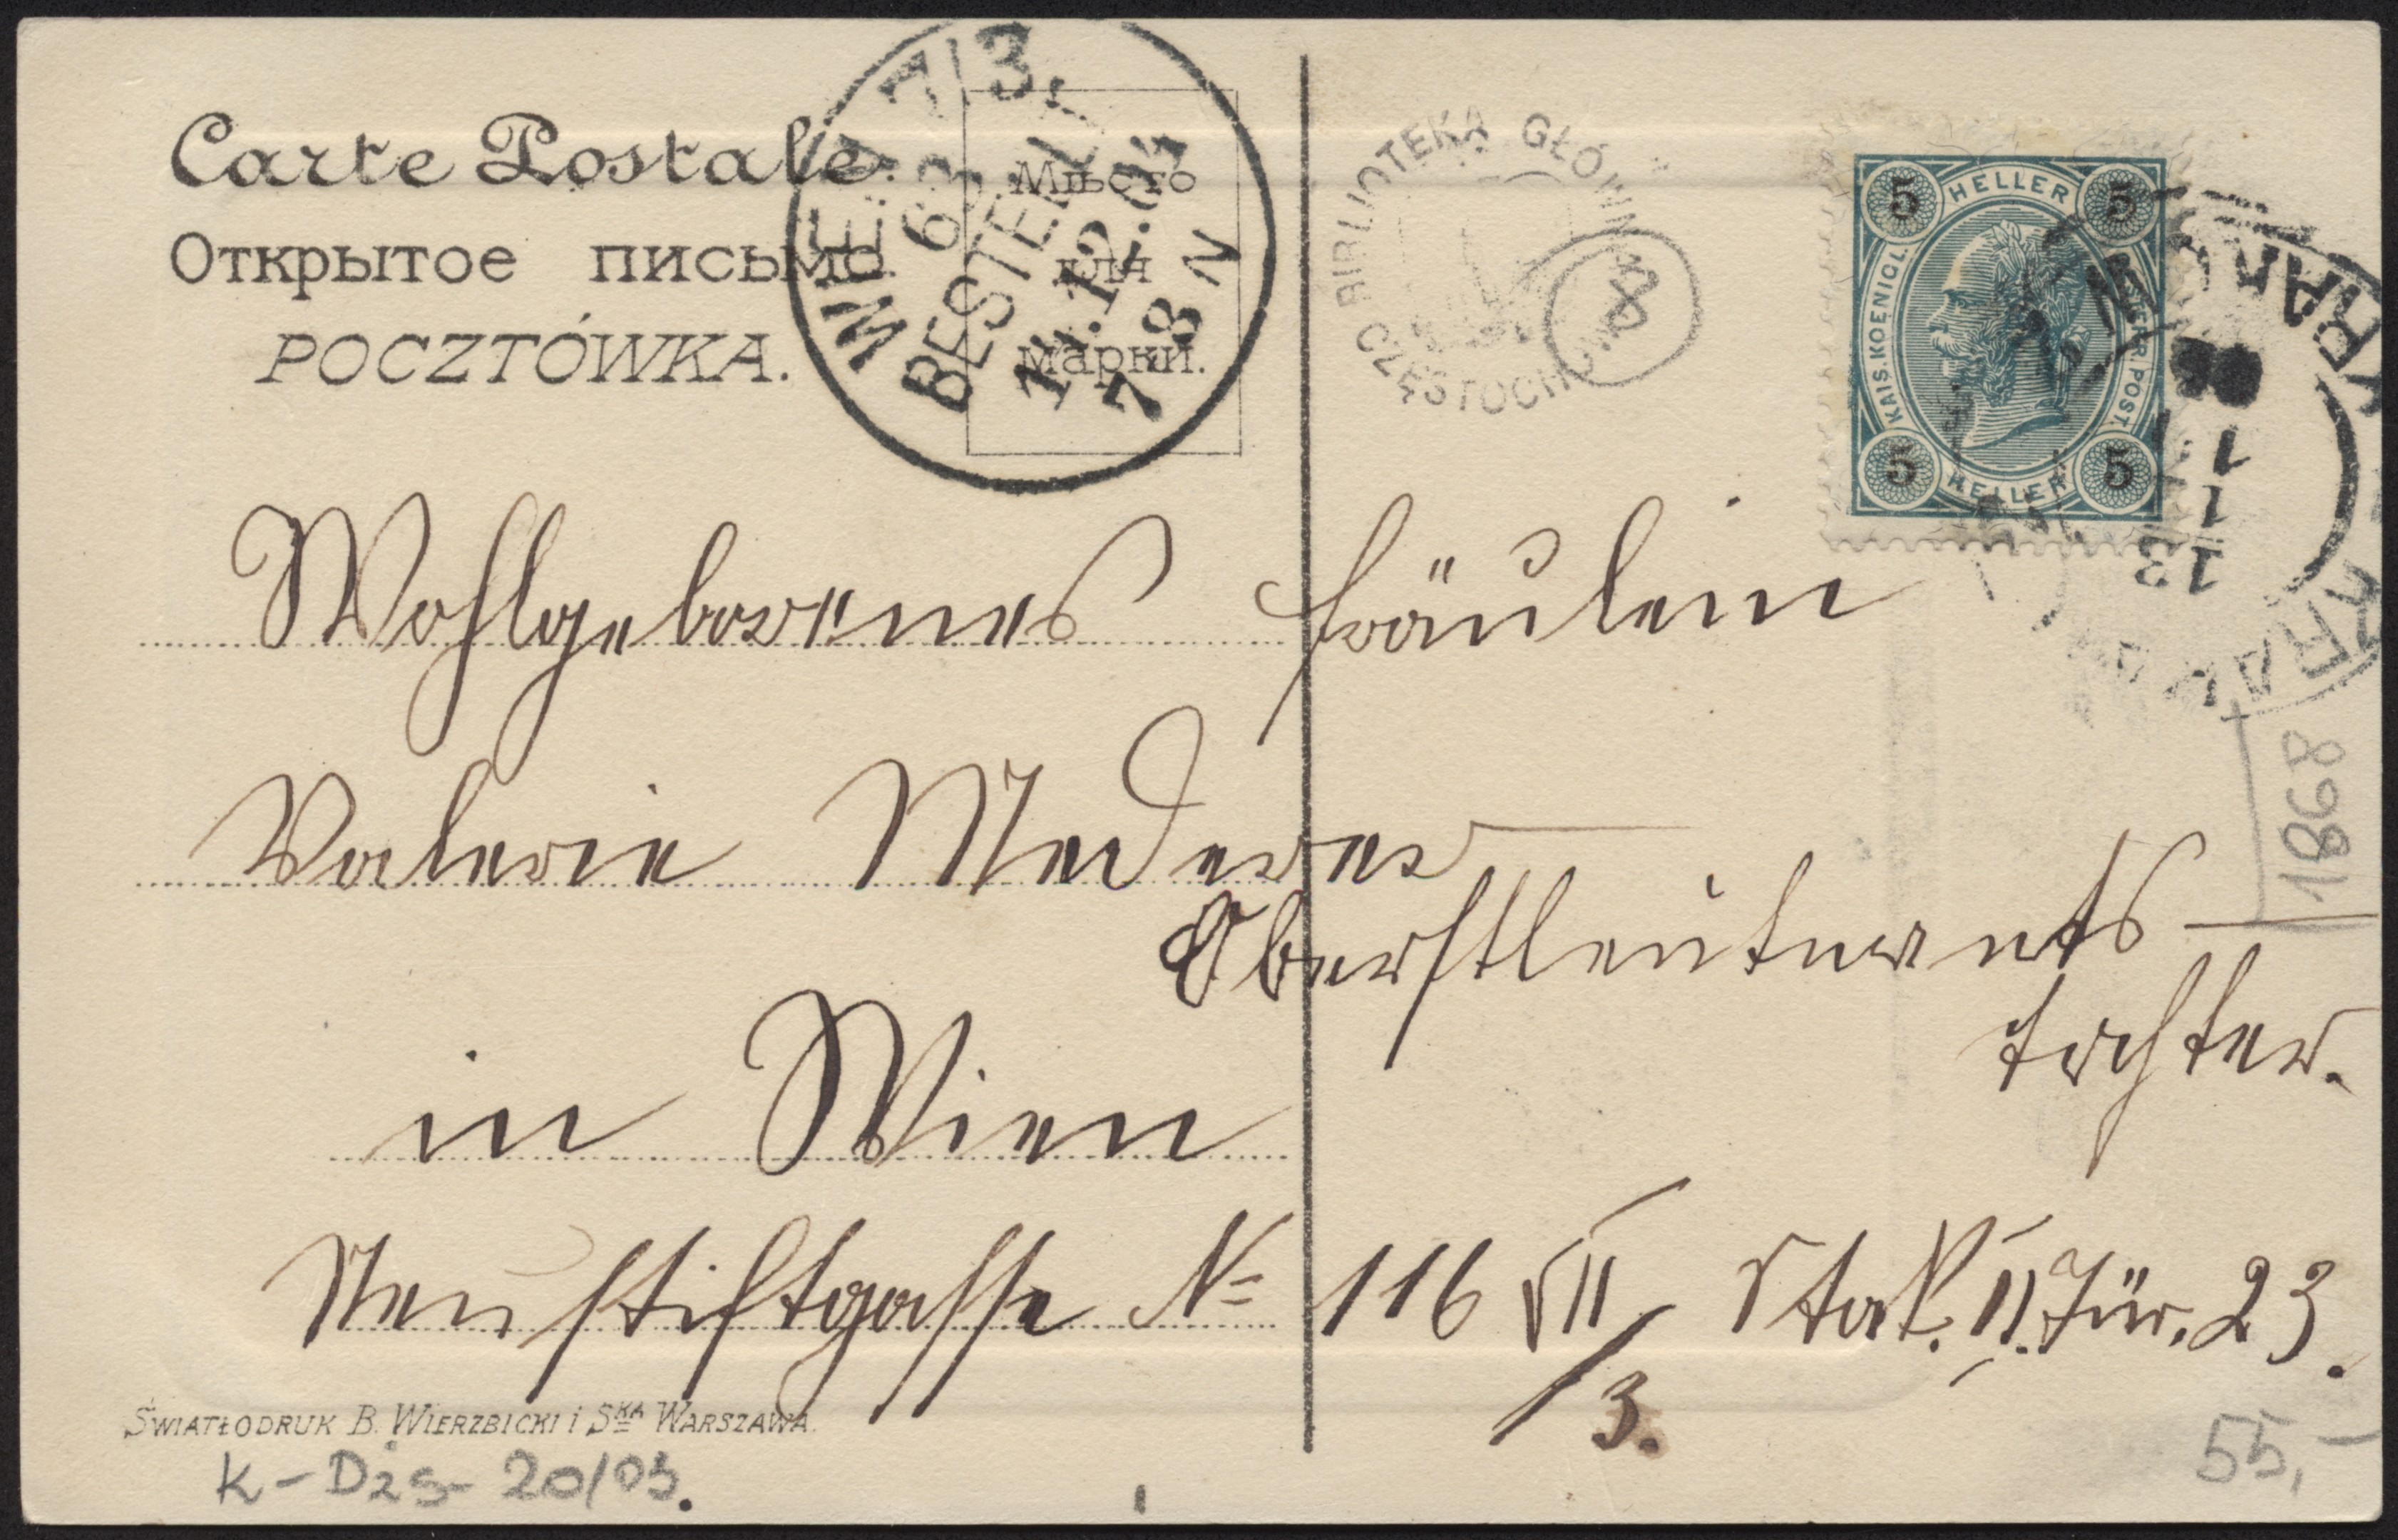 Carte Postale.
Открытое письмо.
POCZTÓWKA.
Мѣсто
для
марки.
WIEN 7/3.
63
BESTELLT
14.12.04
7-8 N
BIBLIOTEKA GŁÓWNA
CZĘSTOCHOWA
5 HELLER 5
KAIS. KOENIGL. OESTERR. POST.
5 HELLER 5
KRAKÓW
13
Wohlgeborenes Fräulein
Valerie Mederer
Oberstleutnants-
tochter.
in Wien
Neustiftgasse № 116 VII/3. Stok. II. Tür. 23.
1868
ŚWIATŁODRUK B. WIERZBICKI i SKA WARSZAWA.
K-Dzs- 20/05.
55,-